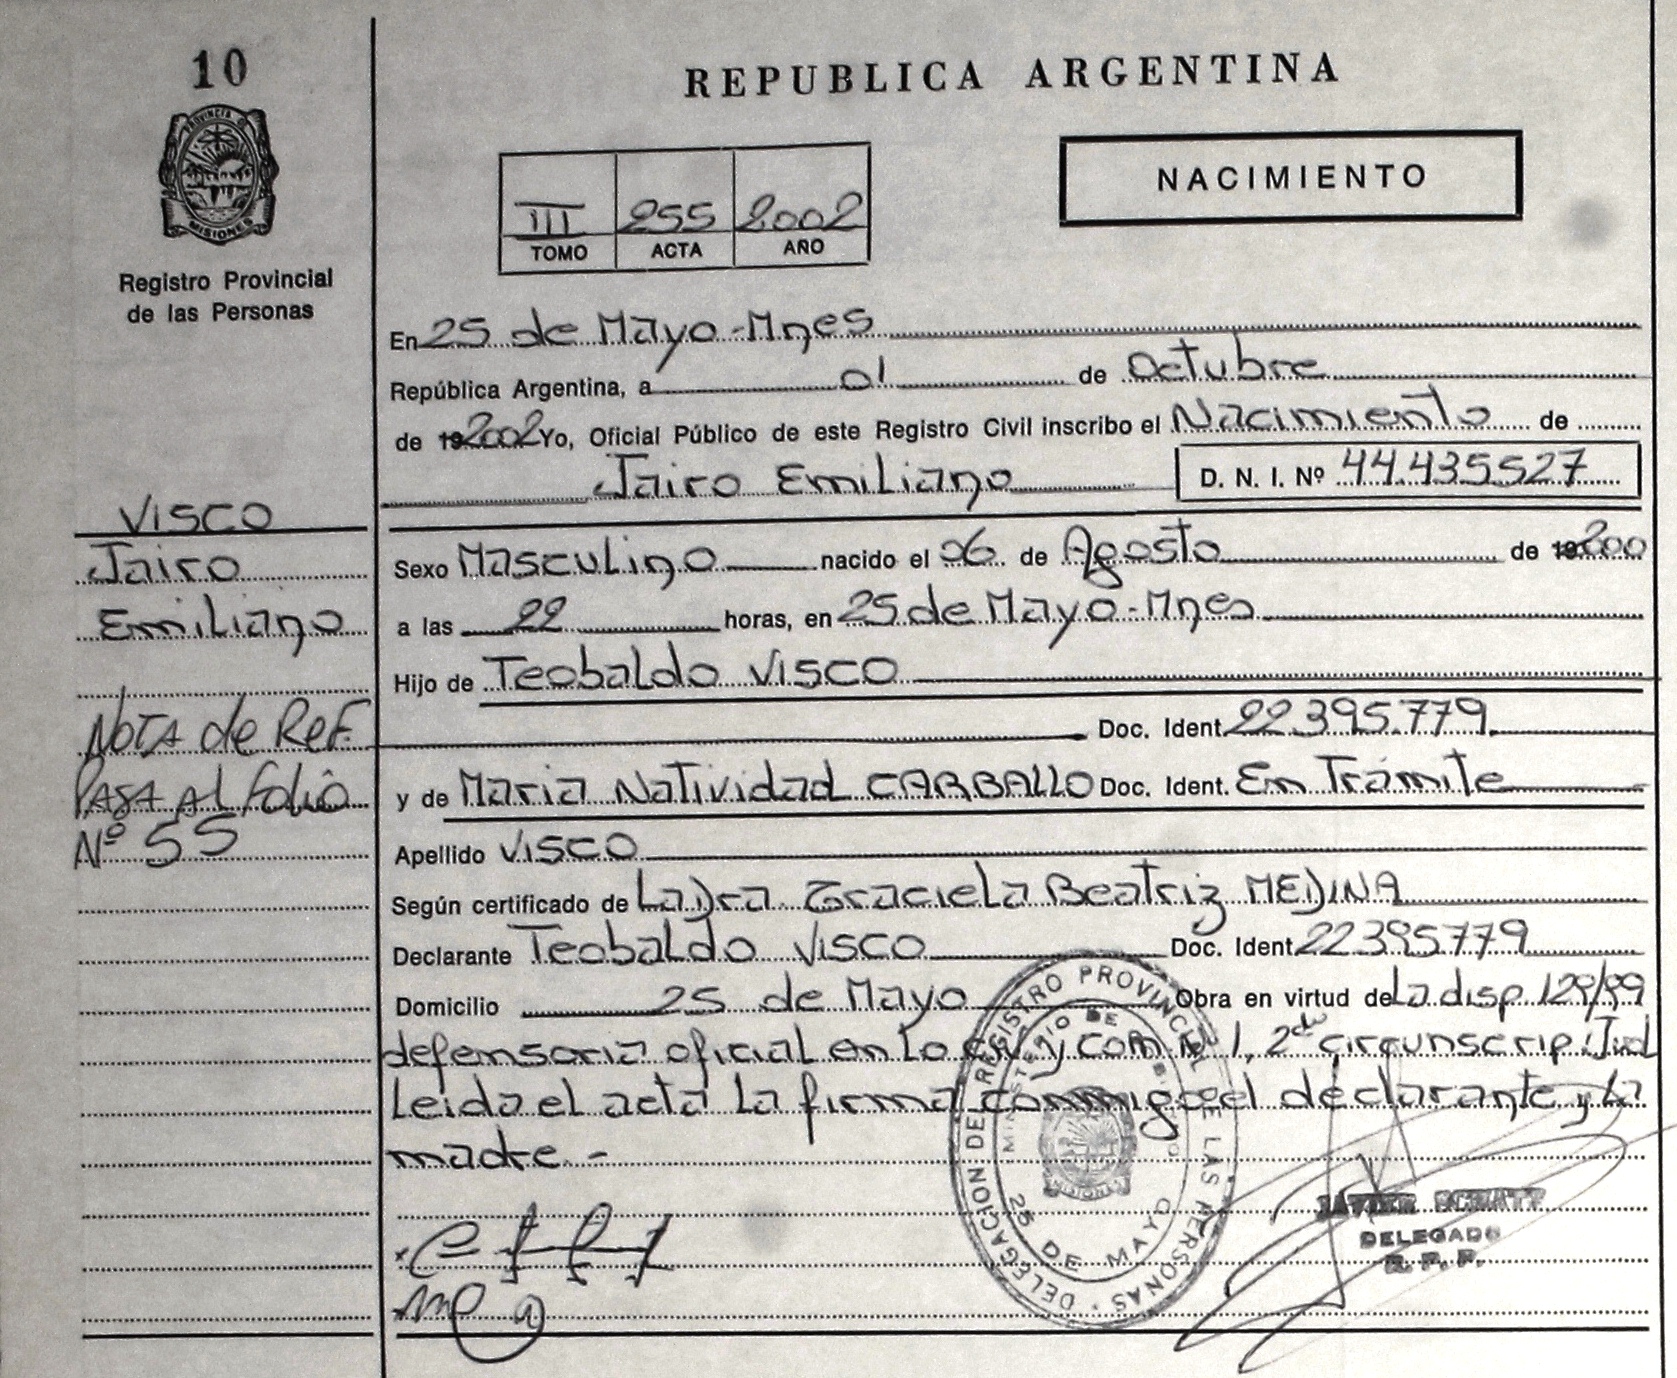 10
REPUBLICA ARGENTINA
PROVINCIA DE
MISIONES
NACIMIENTO
III 255 2002
TOMO ACTA AÑO
Registro Provincial
de las Personas
En 25 de Mayo-Mnes
República Argentina, a 01 de Octubre
de 192002 Yo, Oficial Público de este Registro Civil inscribo el Nacimiento de
Jairo Emiliano D. N. I. Nº 44.435.527
VISCO
Jairo
Emiliano
Sexo Masculino nacido el 06 de Agosto de 19200
a las 22 horas, en 25 de Mayo-Mnes
Hijo de Teobaldo VISCO
Doc. Ident. 22.395.779.
Nota de Ref.
Pasa al folio
Nº 55
y de Maria Natividad CARBALLO Doc. Ident. En Trámite
Apellido VISCO
Según certificado de La Dra. Graciela Beatriz MEDINA
Declarante Teobaldo VISCO Doc. Ident. 22395779
Domicilio 25 de Mayo Obra en virtud de La disp. 129/99
defensoria oficial en lo civ y com Nº 1, 2da circunscrip. Jud
Leida el acta la firma conmigo el declarante y la
madre.-
DELEGACION DE REGISTRO PROVINCIAL DE LAS PERSONAS
MINISTERIO DE
25 DE MAYO
MISIONES
DELEGADO
R. P. P.